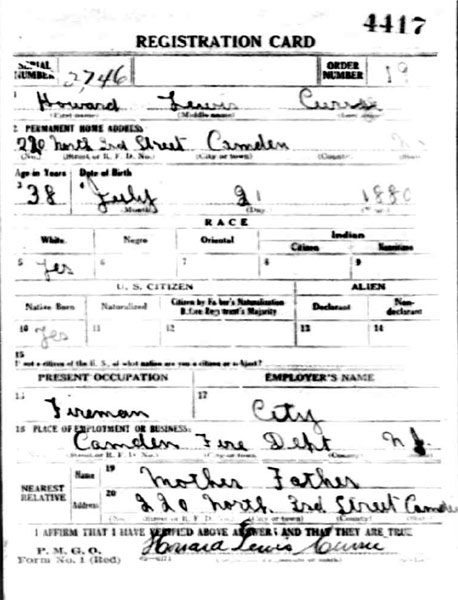 4417
REGISTRATION CARD
SERIAL NUMBER 2746 ORDER NUMBER 19
1 Howard Lewis Currie
(First name) (Middle name) (Last name)
2 PERMANENT HOME ADDRESS:
220 North 3rd Street Camden N
(No.) (Street or R. F. D. No.) (City or town) (County) (State)
Age in Years Date of Birth
3 38 4 July 21 1880
(Month) (Day) (Year)
RACE
White Negro Oriental Indian
Citizen Noncitizen
5 Yes 6 7 8 9
U. S. CITIZEN ALIEN
Native Born Naturalized Citizen by Father's Naturalization Before Registrant's Majority Declarant Non-declarant
10 Yes 11 12 13 14
15
If not a citizen of the U. S., of what nation are you a citizen or subject?
PRESENT OCCUPATION EMPLOYER'S NAME
Fireman 17 City
18 PLACE OF EMPLOYMENT OR BUSINESS:
Camden Fire Dept N J.
(No.) (Street or R. F. D. No.) (City or town) (County) (State)
NEAREST RELATIVE Name 19 Mother Father
Address 20 220 North 3rd Street Camden
(No.) (Street or R. F. D. No.) (City or town) (County) (State)
I AFFIRM THAT I HAVE VERIFIED ABOVE ANSWERS AND THAT THEY ARE TRUE
P. M. G. O.
Form No. 1 (Red) Howard Lewis Currie